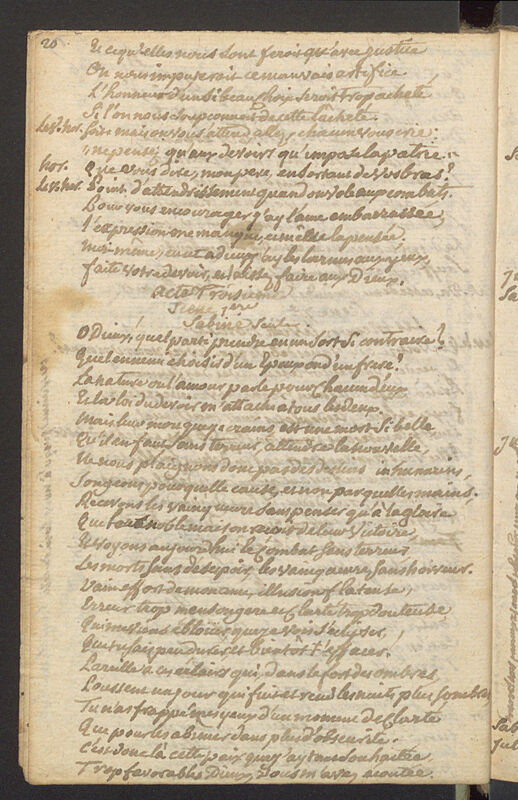 20
Et ce qu'elles nous font feroit qu'avec justice
On nous imputeroit ce mauvais artifice
L'honneur d'un si beau choix seroit trop acheté
Si l'on nous soupçonnoit de cette lâcheté.
Le v. hor. soit mais on vous attend allez, chacun vous crie:
ne pensez qu'aux devoirs qu'impose la patrie.
hor. Que vous dire, mon pere, en sortant de vos bras?
Le v. hor. Point d'attendrissement quand on vole aux combats.
Pour vous encourager j'ay l'ame embarrassée,
l'expression me manque, ainsi que la pensée,
Moi-même, en cet adieux, j'ay les larmes aux yeux,
faites votre devoir, et laissez faire aux Dieux.
Acte Troisieme
Scene 1ere
Sabine Seule
O Dieux! quel parti prendre en un sort si contraire?
Quel ennemi choisir d'un Epoux ou d'un frere?
La nature ou l'amour parle pour chacun d'eux
Et la loi du devoir m'attache a tous les deux.
Mais leur
Qu'il en faut sans terreur attendre la nouvelle,
Ne nous plaignons donc pas des destins inhumains,
Songeons pour quelle cause, et non par quelles mains.
Revoyons les vainqueurs sans penser qu'a la gloire
Que toute noble maison reçoit de leur victoire
Et voyons aujourd'hui le combat sans terreur
Les morts sans desespoir, les vainqueurs sans horreur.
Vain effort de mon ame, illusion flateuse,
Erreur trop mensongere et clarté trop douteuse
Qui me viens éblouir, que je vois s'eclipser,
Que tu sais peu durer et bientost t'effacer.
Pareille a ces éclairs qui, dans le fort des ombres,
Poussent un jour qui fuit et rend les nuits plus sombres
Tu n'as frappé mes yeux d'un moment de clarté
Que pour les abimer dans plus d'obscurité.
C'est donc là cette paix que j'ay tant souhaitée
Trop favorables Dieux, vous m'avez écoutée.